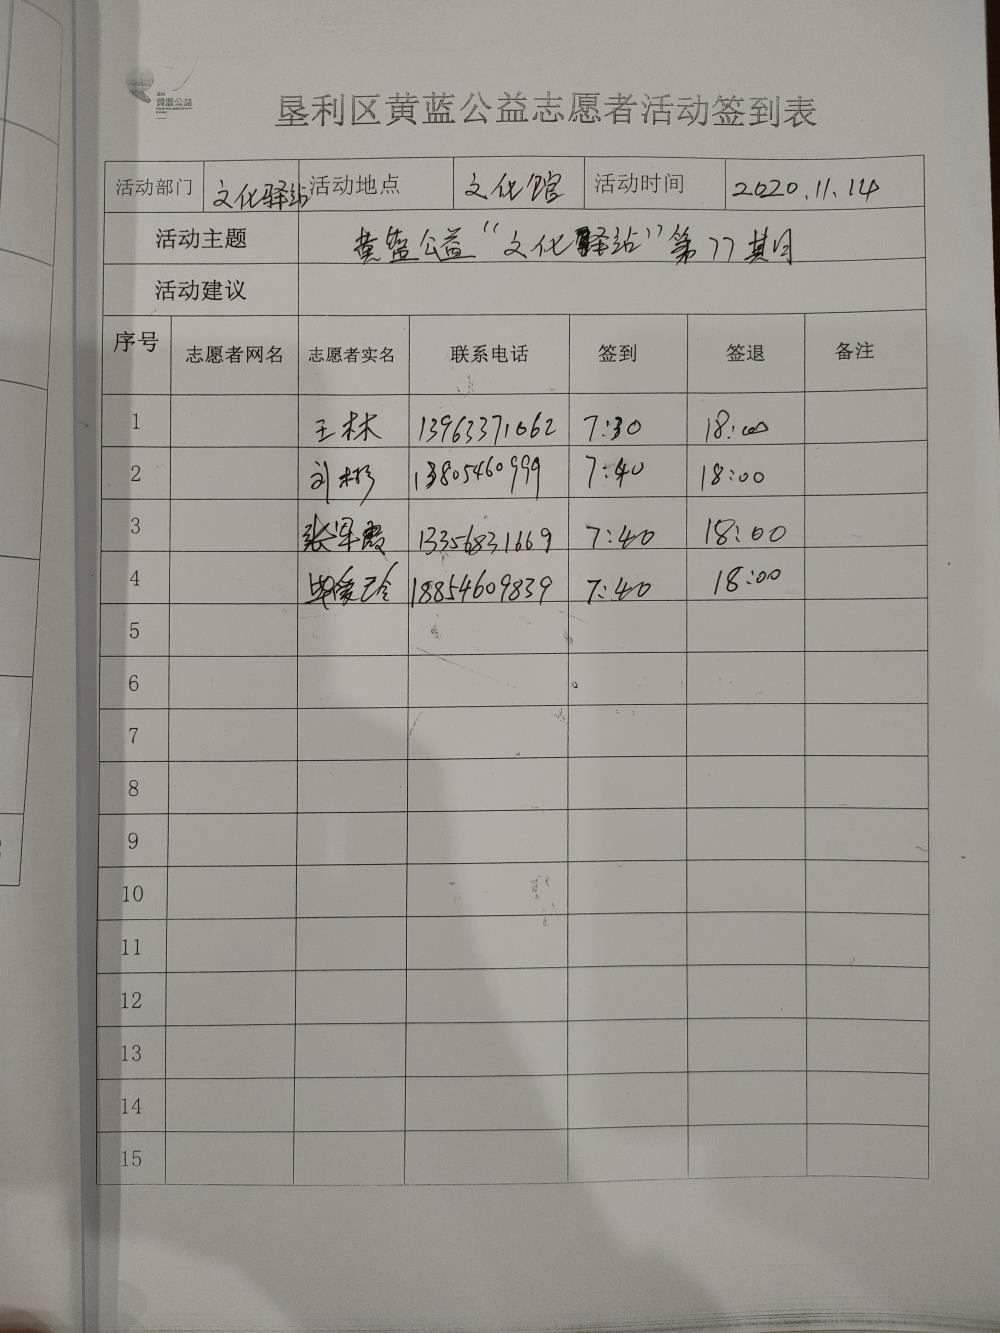 黄蓝公益
垦利区黄蓝公益志愿者活动签到表
活动部门 文化驿站 活动地点 文化馆 活动时间 2020.11.14
活动主题 黄蓝公益“文化驿站”第77期
活动建议
序号 志愿者网名 志愿者实名 联系电话 签到 签退 备注
1 王林 13963371062 7:30 18:00
2 刘彬 13805460999 7:40 18:00
3 张翠霞 13356831669 7:40 18:00
4 毕爱玲 18854609839 7:40 18:00
5
6
7
8
9
10
11
12
13
14
15